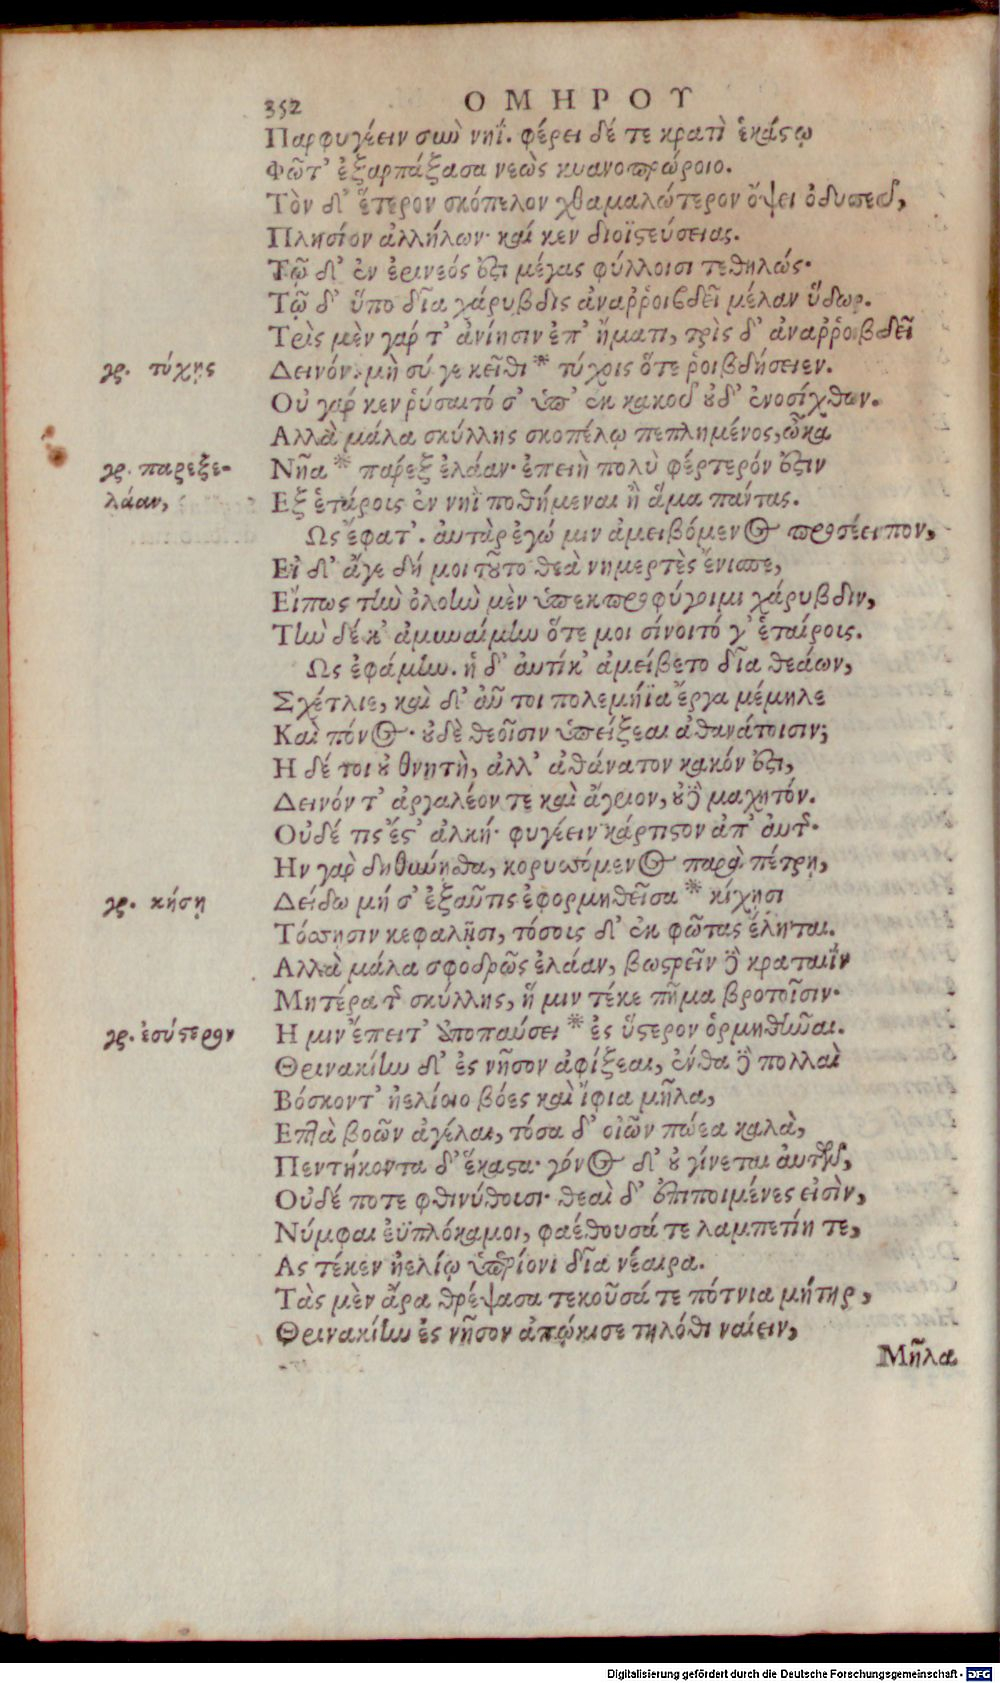 352 ΟΜΗΡΟΥ
Παρφυγέειν σὺν νηΐ. φέρει δέ τε κρατὶ ἑκάςῳ
Φῶτ' ἐξαρπάξασα νεὼς κυανοπρώροιο.
Τὸν δ' ἕτερον σκόπελον χθαμαλώτερον ὄψει ὀδυσσεῦ,
Πλησίον ἀλλήλων· καί κεν διοϊςεύσειας.
Τῷ δ' ἐν ἐρινεός ἐςι μέγας φύλλοισι τεθηλώς·
Τῷ δ' ὕπο δῖα χάρυβδις ἀναῤῥοιβδεῖ μέλαν ὕδωρ.
Τρὶς μὲν γάρ τ' ἀνίησιν ἐπ' ἤματι, τρὶς δ' ἀναῤῥοιβδεῖ
γρ. τύχῃς
Δεινόν. μὴ σύ γε κεῖθι * τύχοις ὅτε ῥοιβδήσειεν.
Οὐ γάρ κεν ῥύσαιτό σ' ὑπ' ἐκ κακοῦ οὐδ' ἐνοσίχθων.
Αλλὰ μάλα σκύλλης σκοπέλῳ πεπλημένος, ὦκα
γρ. παρεξε-
λάαν,
Νῆα * παρὲξ ἐλάαν· ἐπειὴ πολὺ φέρτερόν ἐςιν
Εξ ἑτάροις ἐν νηῒ ποθήμεναι ἢ ἅμα πάντας.
Ως ἔφατ'. αὐτὰρ ἐγώ μιν ἀμειβόμενος προσέειπον,
Εἰ δ' ἄγε δή μοι τοῦτο θεὰ νημερτὲς ἔνισπε,
Εἴπως τὴν ὀλοὴν μὲν ὑπεκπροφύγοιμι χάρυβδιν,
Τὴν δέ κ' ἀμυναίμην ὅτε μοι σίνοιτό γ' ἑταίροις.
Ως ἐφάμην. ἡ δ' αὐτίκ' ἀμείβετο δῖα θεάων,
Σχέτλιε, καὶ δ' αὖ τοι πολεμήϊα ἔργα μέμηλε
Καὶ πόνος· οὐδὲ θεοῖσιν ὑπείξεαι ἀθανάτοισιν;
Η δέ τοι οὐ θνητὴ, ἀλλ' ἀθάνατον κακόν ἐςι,
Δεινόν τ' ἀργαλέον τε καὶ ἄγριον, οὐδὲ μαχητόν.
Οὐδέ τις ἔς' ἀλκή· φυγέειν κάρτιςον ἀπ' αὐτῆς·
Ην γὰρ δηθύνῃσθα, κορυσσόμενος παρὰ πέτρῃ,
γρ. κήσῃ
Δείδω μή σ' ἐξαῦτις ἐφορμηθεῖσα * κίχησι
Τόσσησιν κεφαλῇσι, τόσοις δ' ἐκ φῶτας ἕληται.
Αλλὰ μάλα σφοδρῶς ἐλάαν, βωςρεῖν δὲ κραταιῒν
Μητέρα τῆς σκύλλης, ἥ μιν τέκε πῆμα βροτοῖσιν·
γρ. ἐσύςερον
Η μιν ἔπειτ' ἀποπαύσει * ἐς ὕςερον ὁρμηθῆναι.
Θρινακίην δ' ἐς νῆσον ἀφίξεαι, ἔνθα δὲ πολλαὶ
Βόσκοντ' ἠελίοιο βόες καὶ ἴφια μῆλα,
Επτὰ βοῶν ἀγέλαι, τόσα δ' οἰῶν πώεα καλὰ,
Πεντήκοντα δ' ἕκαςα· γόνος δ' οὐ γίνεται αὐτῶν,
Οὐδέ ποτε φθινύθουσι· θεαὶ δ' ἐπιποιμένες εἰσὶν,
Νύμφαι ἐϋπλόκαμοι, φαέθουσά τε λαμπετίη τε,
Ας τέκεν ἠελίῳ ὑπερίονι δῖα νέαιρα.
Τὰς μὲν ἄρα θρέψασα τεκοῦσά τε πότνια μήτηρ,
Θρινακίην ἐς νῆσον ἀπῴκισε τηλόθι ναίειν,
Μῆλα
Digitalisierung gefördert durch die Deutsche Forschungsgemeinschaft - DFG